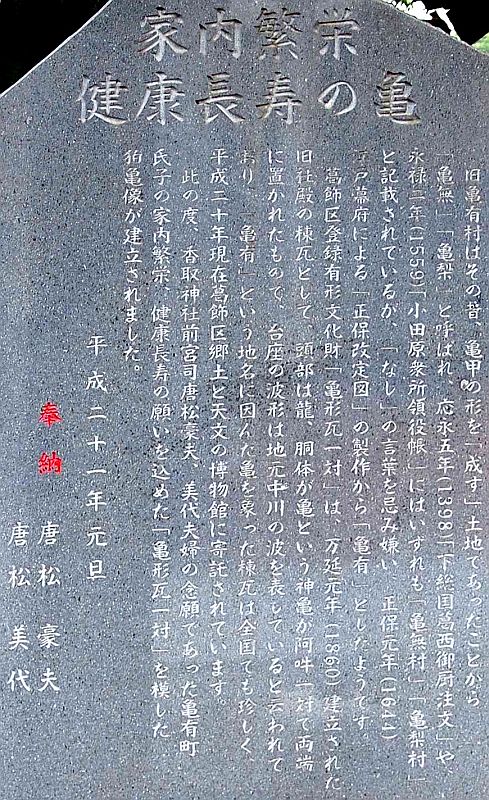 家内繁栄
健康長寿の亀
旧亀有村はその昔、亀甲の形を「成す」土地であったことから
「亀無」「亀梨」と呼ばれ、応永五年(1398)「下総国葛西御厨注文」や、
永禄二年(1559)「小田原衆所領役帳」にはいずれも「亀無村」「亀梨村」
と記載されているが、「なし」の言葉を忌み嫌い、正保元年(1644)
江戸幕府による「正保改定図」の製作から「亀有」としたようです。
葛飾区登録有形文化財「亀形瓦一対」は、万延元年(1860)建立された
旧社殿の棟瓦として、頭部は龍、胴体が亀という神亀が阿吽一対で両端
に置かれたもので、台座の波形は地元中川の波を表していると云われて
おり、「亀有」という地名に因んだ亀を象った棟瓦は全国でも珍しく、
平成二十年現在葛飾区郷土と天文の博物館に寄託されています。
此の度、香取神社前宮司唐松豪夫、美代夫婦の念願であった亀有町
氏子の家内繁栄、健康長寿の願いを込めた「亀形瓦一対」を模した
狛亀像が建立されました。
平成二十一年元旦
奉納 唐松 豪夫
唐松 美代